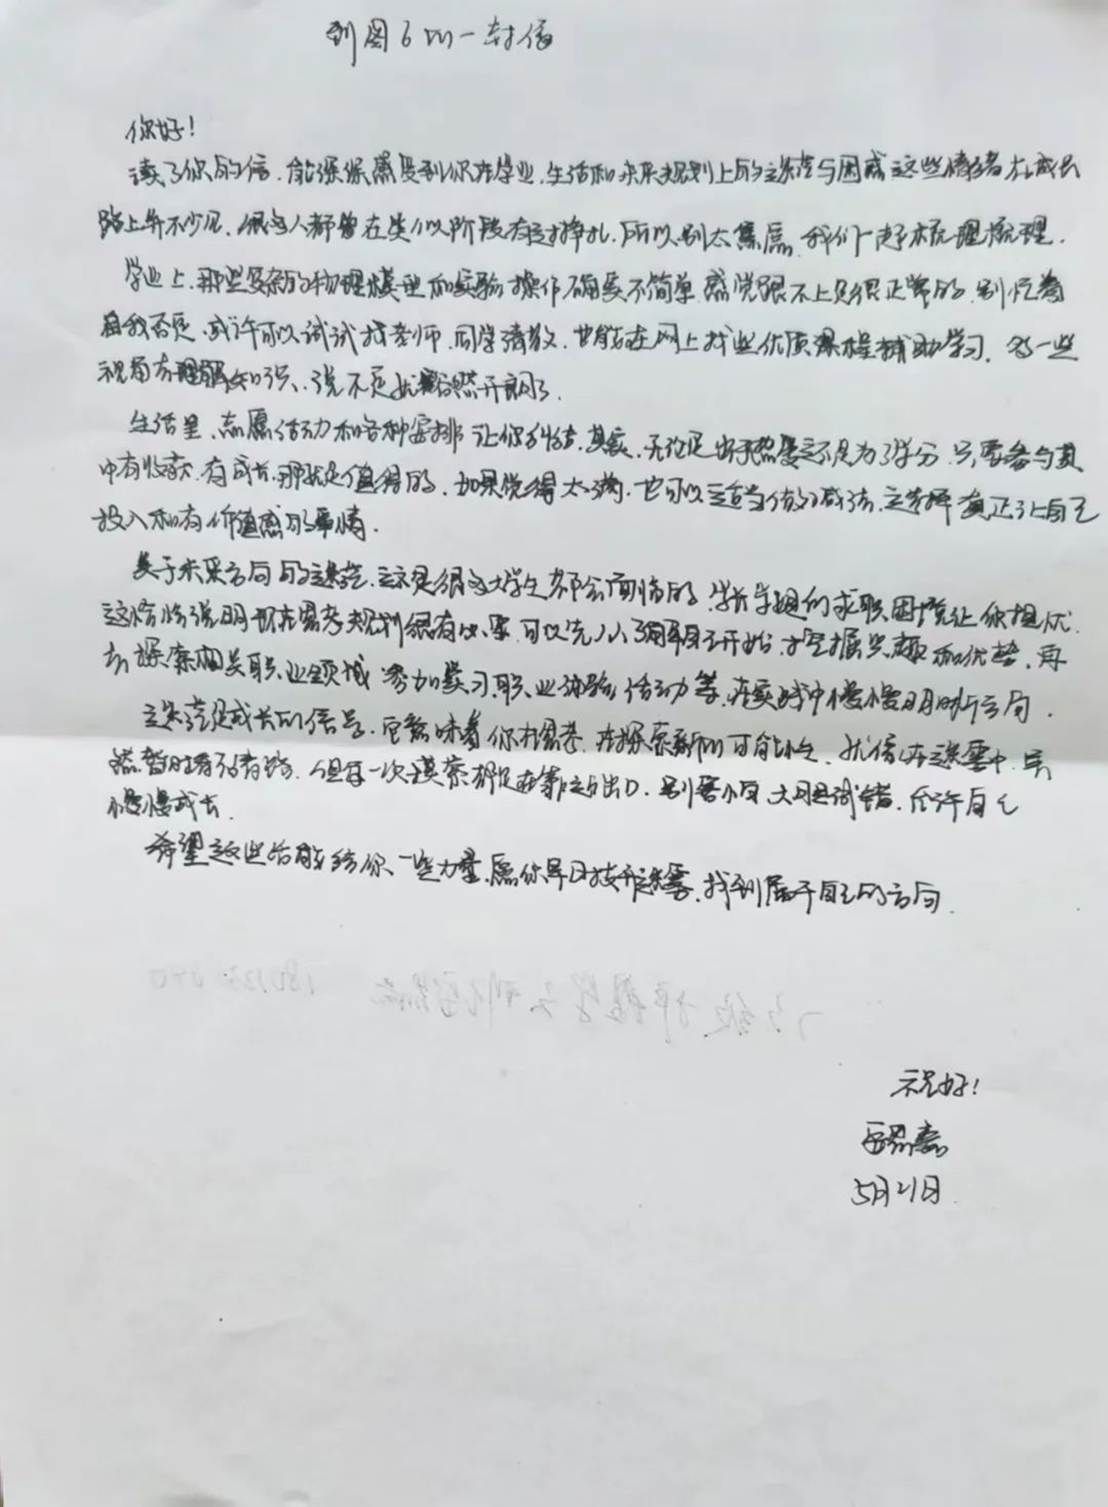 到图6的一封信
你好！
读了你的信，能深深感受到你在学业、生活和未来规划上的迷茫与困惑 这些情绪在成长
路上并不少见，很多人都曾在类似阶段有过挣扎，所以别太焦虑，我们一起梳理梳理．
学业上，那些复杂的物理模型和实验操作确实不简单 感觉跟不上是很正常的，别忙着
自我否定，或许可以试试找老师、同学请教，也能在网上找些优质课程辅助学习，多一些
视角去理解知识，说不定就豁然开朗了．
生活里，志愿活动和各种安排让你纠结，其实，无论是出于热爱还是为了学分，只要参与其
中有收获，有成长，那就是值得的，如果觉得太满，也可以适当做做减法，选择真正让自己
投入和有价值感的事情．
关于未来方向的迷茫，这是很多大学生都会面临的，学长学姐们求职困境让你担忧．
这恰恰说明现在思考规划很有必要，可以先从了解自己开始，挖掘兴趣和优势，再
去探索相关职业领域 参加实习，职业体验活动等，在实践中慢慢明晰方向．
迷茫是成长的信号，它意味着你在思考，在探索新的可能性，就像在迷雾中，虽
然暂时看不清路，但每一次摸索都是在靠近出口，别害怕，大胆试错，允许自己
慢慢成长．
希望这些话能给你一些力量，愿你早日拨开迷雾，找到属于自己的方向．
祝好！
5月21日